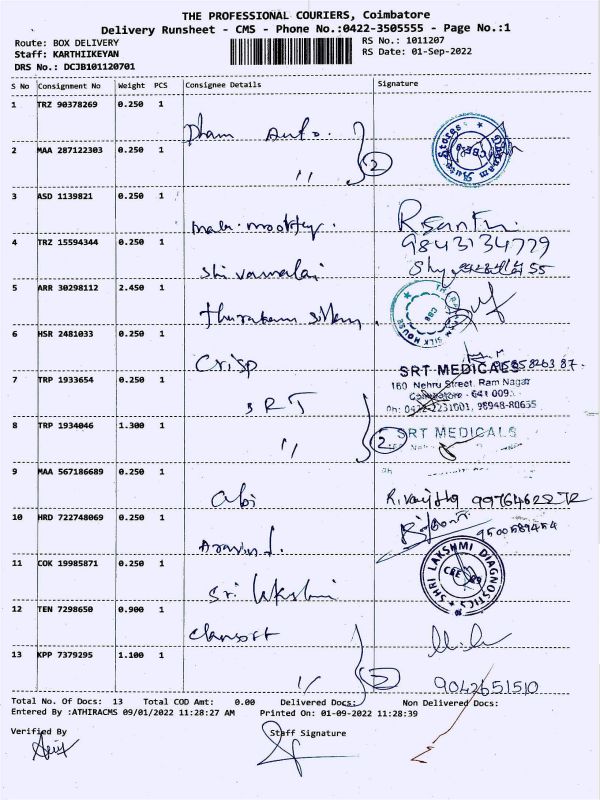 THE PROFESSIONAL COURIERS, Coimbatore
Delivery Runsheet - CMS - Phone No.:0422-3505555 - Page No.:1
Route: BOX DELIVERY
RS No.: 1011207
Staff: KARTHIIKEYAN
RS Date: 01-Sep-2022
DRS No.: DCJB101120701
S No Consignment No Weight PCS Consignee Details Signature
1 TRZ 90378269 0.250 1
Dham Auto.
2 MAA 287122303 0.250 1
" 2
3 ASD 1139821 0.250 1
R. Santhi
9843134779
4 TRZ 15594344 0.250 1
Shivamalai
55
5 ARR 30298112 2.450 1
SILK HOUSE
6 HSR 2481033 0.250 1
Crisp
SRT MEDICALS
160 Nehru Street, Ram Nagar
Coimbatore - 641 009.
Ph: 0422-2231001, 98948-80655
7 TRP 1933654 0.250 1
SRT
8 TRP 1934046 1.300 1
" 2
SRT MEDICALS
9 MAA 567186689 0.250 1
Abi
10 HRD 722748069 0.250 1
Aravind.
9500589454
11 COK 19985871 0.250 1
Sri lakshmi
SHRI LAKSHMI DIAGNOSTICS
12 TEN 7298650 0.900 1
Clansoft
13 KPP 7379295 1.100 1
" 2
9042651510
Total No. Of Docs: 13 Total COD Amt: 0.00 Delivered Docs: Non Delivered Docs:
Entered By :ATHIRACMS 09/01/2022 11:28:27 AM Printed On: 01-09-2022 11:28:39
Verified By Staff Signature